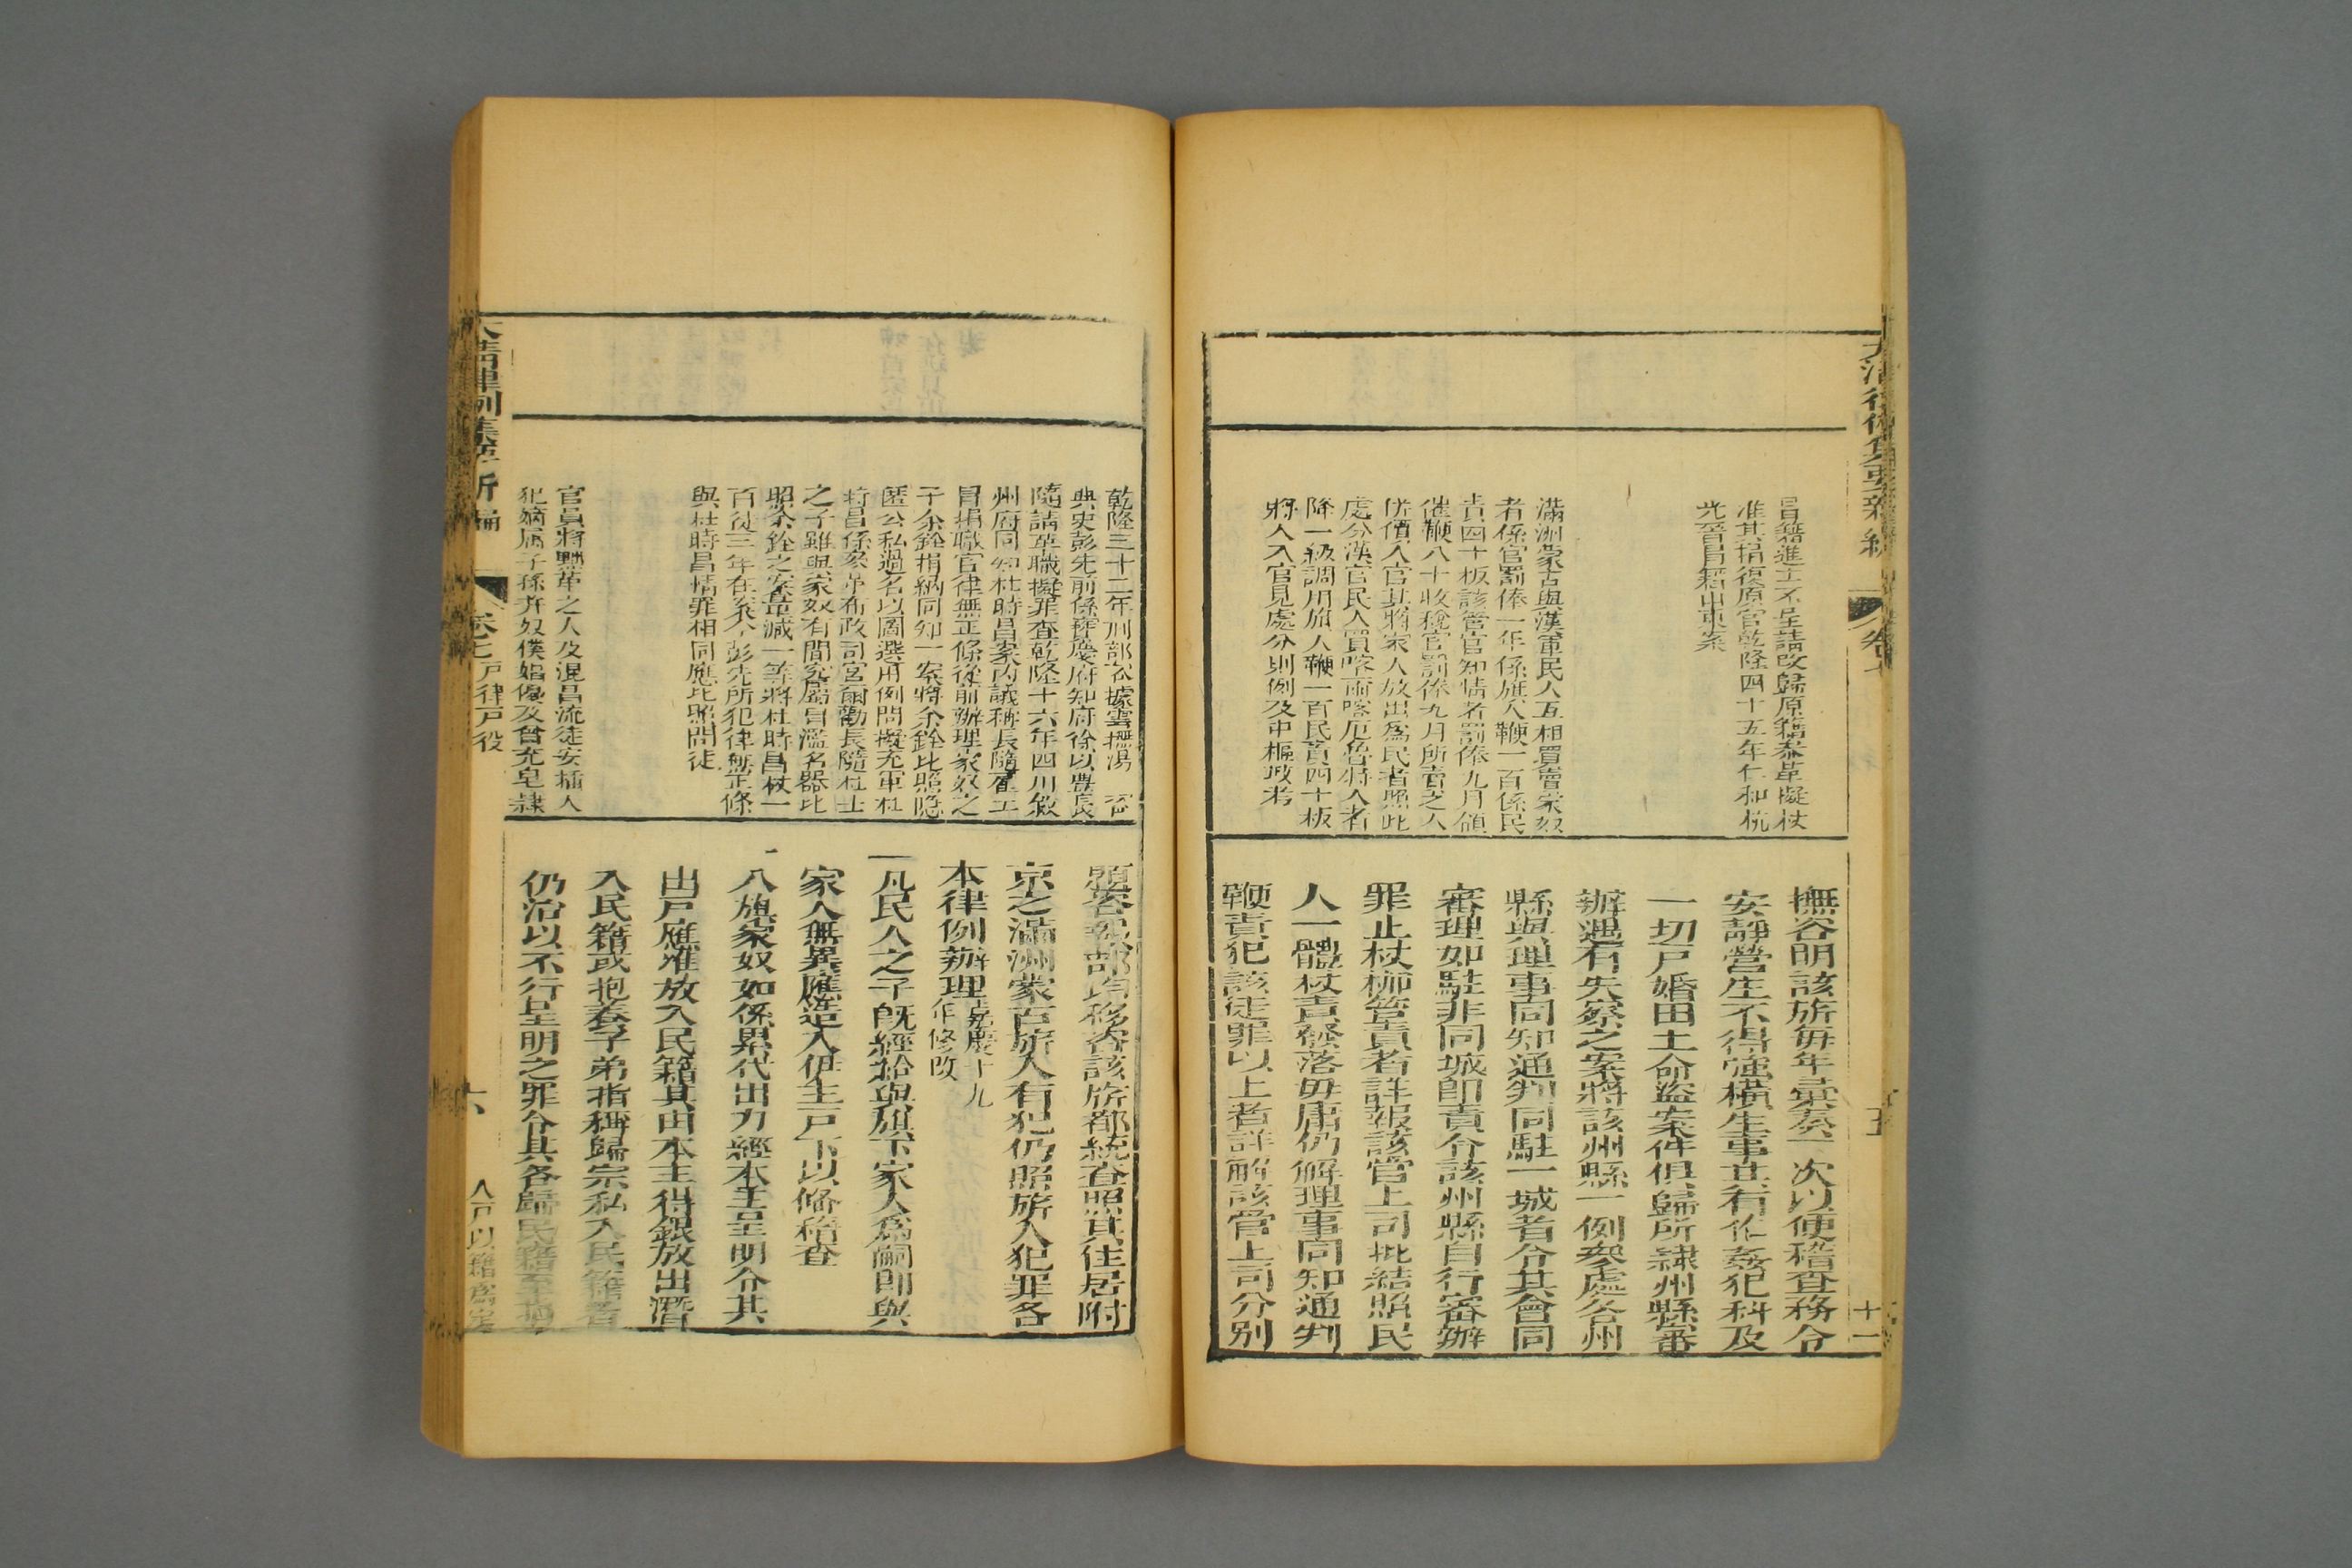 冒籍進士不呈請改歸原籍叅革擬杖
准其捐復原官乾隆四十五年仁和杭
光晉冒籍山東案
滿洲蒙古與漢軍民人互相買賣家奴
者係官罰俸一年係旗人鞭一百係民
責四十板該管官知情者罰俸九月領
催鞭八十收稅官罰俸九月所賣之人
併價入官其將家人放出爲民者照此
處分漢官民人買喀爾喀厄魯特人者
降一級調用旗人鞭一百民責四十板
將人入官見處分則例及中樞政考
撫咨明該旂每年彙奏一次以便稽查務令
安靜營生不得強橫生事其有作姦犯科及
一切戸婚田土命盜案件俱歸所隷州縣審
辦遇有失察之案將該州縣一例叅處各州
縣與理事同知通判同駐一城者令其會同
審理如駐非同城卽責令該州縣自行審辦
罪止杖枷笞責者詳報該管上司批結照民
人一體杖責發落毋庸仍解理事同知通判
鞭責犯該徒罪以上者詳解該管上司分別
乾隆三十二年刑部咨據雲撫湯 咨
典史彭先前係肇慶府知府徐以豊長
隨請革職擬罪查乾隆十六年四川敘
州府同知杜時昌案內議稱長隨雇工
冒捐職官律無正條從前辦理家奴之
子余銓捐納同知一案將余銓比照隐
匿公私過名以圖選用例問擬充軍杜
時昌係叅革布政司宮爾勸長隨杜士
之子雖與家奴有間究屬冒濫名器比
照余銓之案量減一等將杜時昌杖一
百徒三年在案今彭先所犯律無正條
與杜時昌情罪相同應比照問徒
官員將黜革之人及混冒流徒安插人
犯嫡属子孫并奴僕娼優及曾充皂隷
題咨兵部均移咨該旂都統查照其住居附
京之滿洲蒙古旂人有犯仍照旂人犯罪各
本律例辦理嘉慶十九年修改
一凡民人之子旣經給與旗下家人爲嗣卽與
家人無異應造入伊主戸下以備稽查
一八旗家奴如係累代出力經本主呈明令其
出戸應准放入民籍其由本主得銀放出潛
入民籍或抱養子弟指稱歸宗私入民籍者
仍治以不行呈明之罪令其各歸民籍至抱
大淸律例集要新編 卷七 戸律戸役 六 人戸以籍爲定